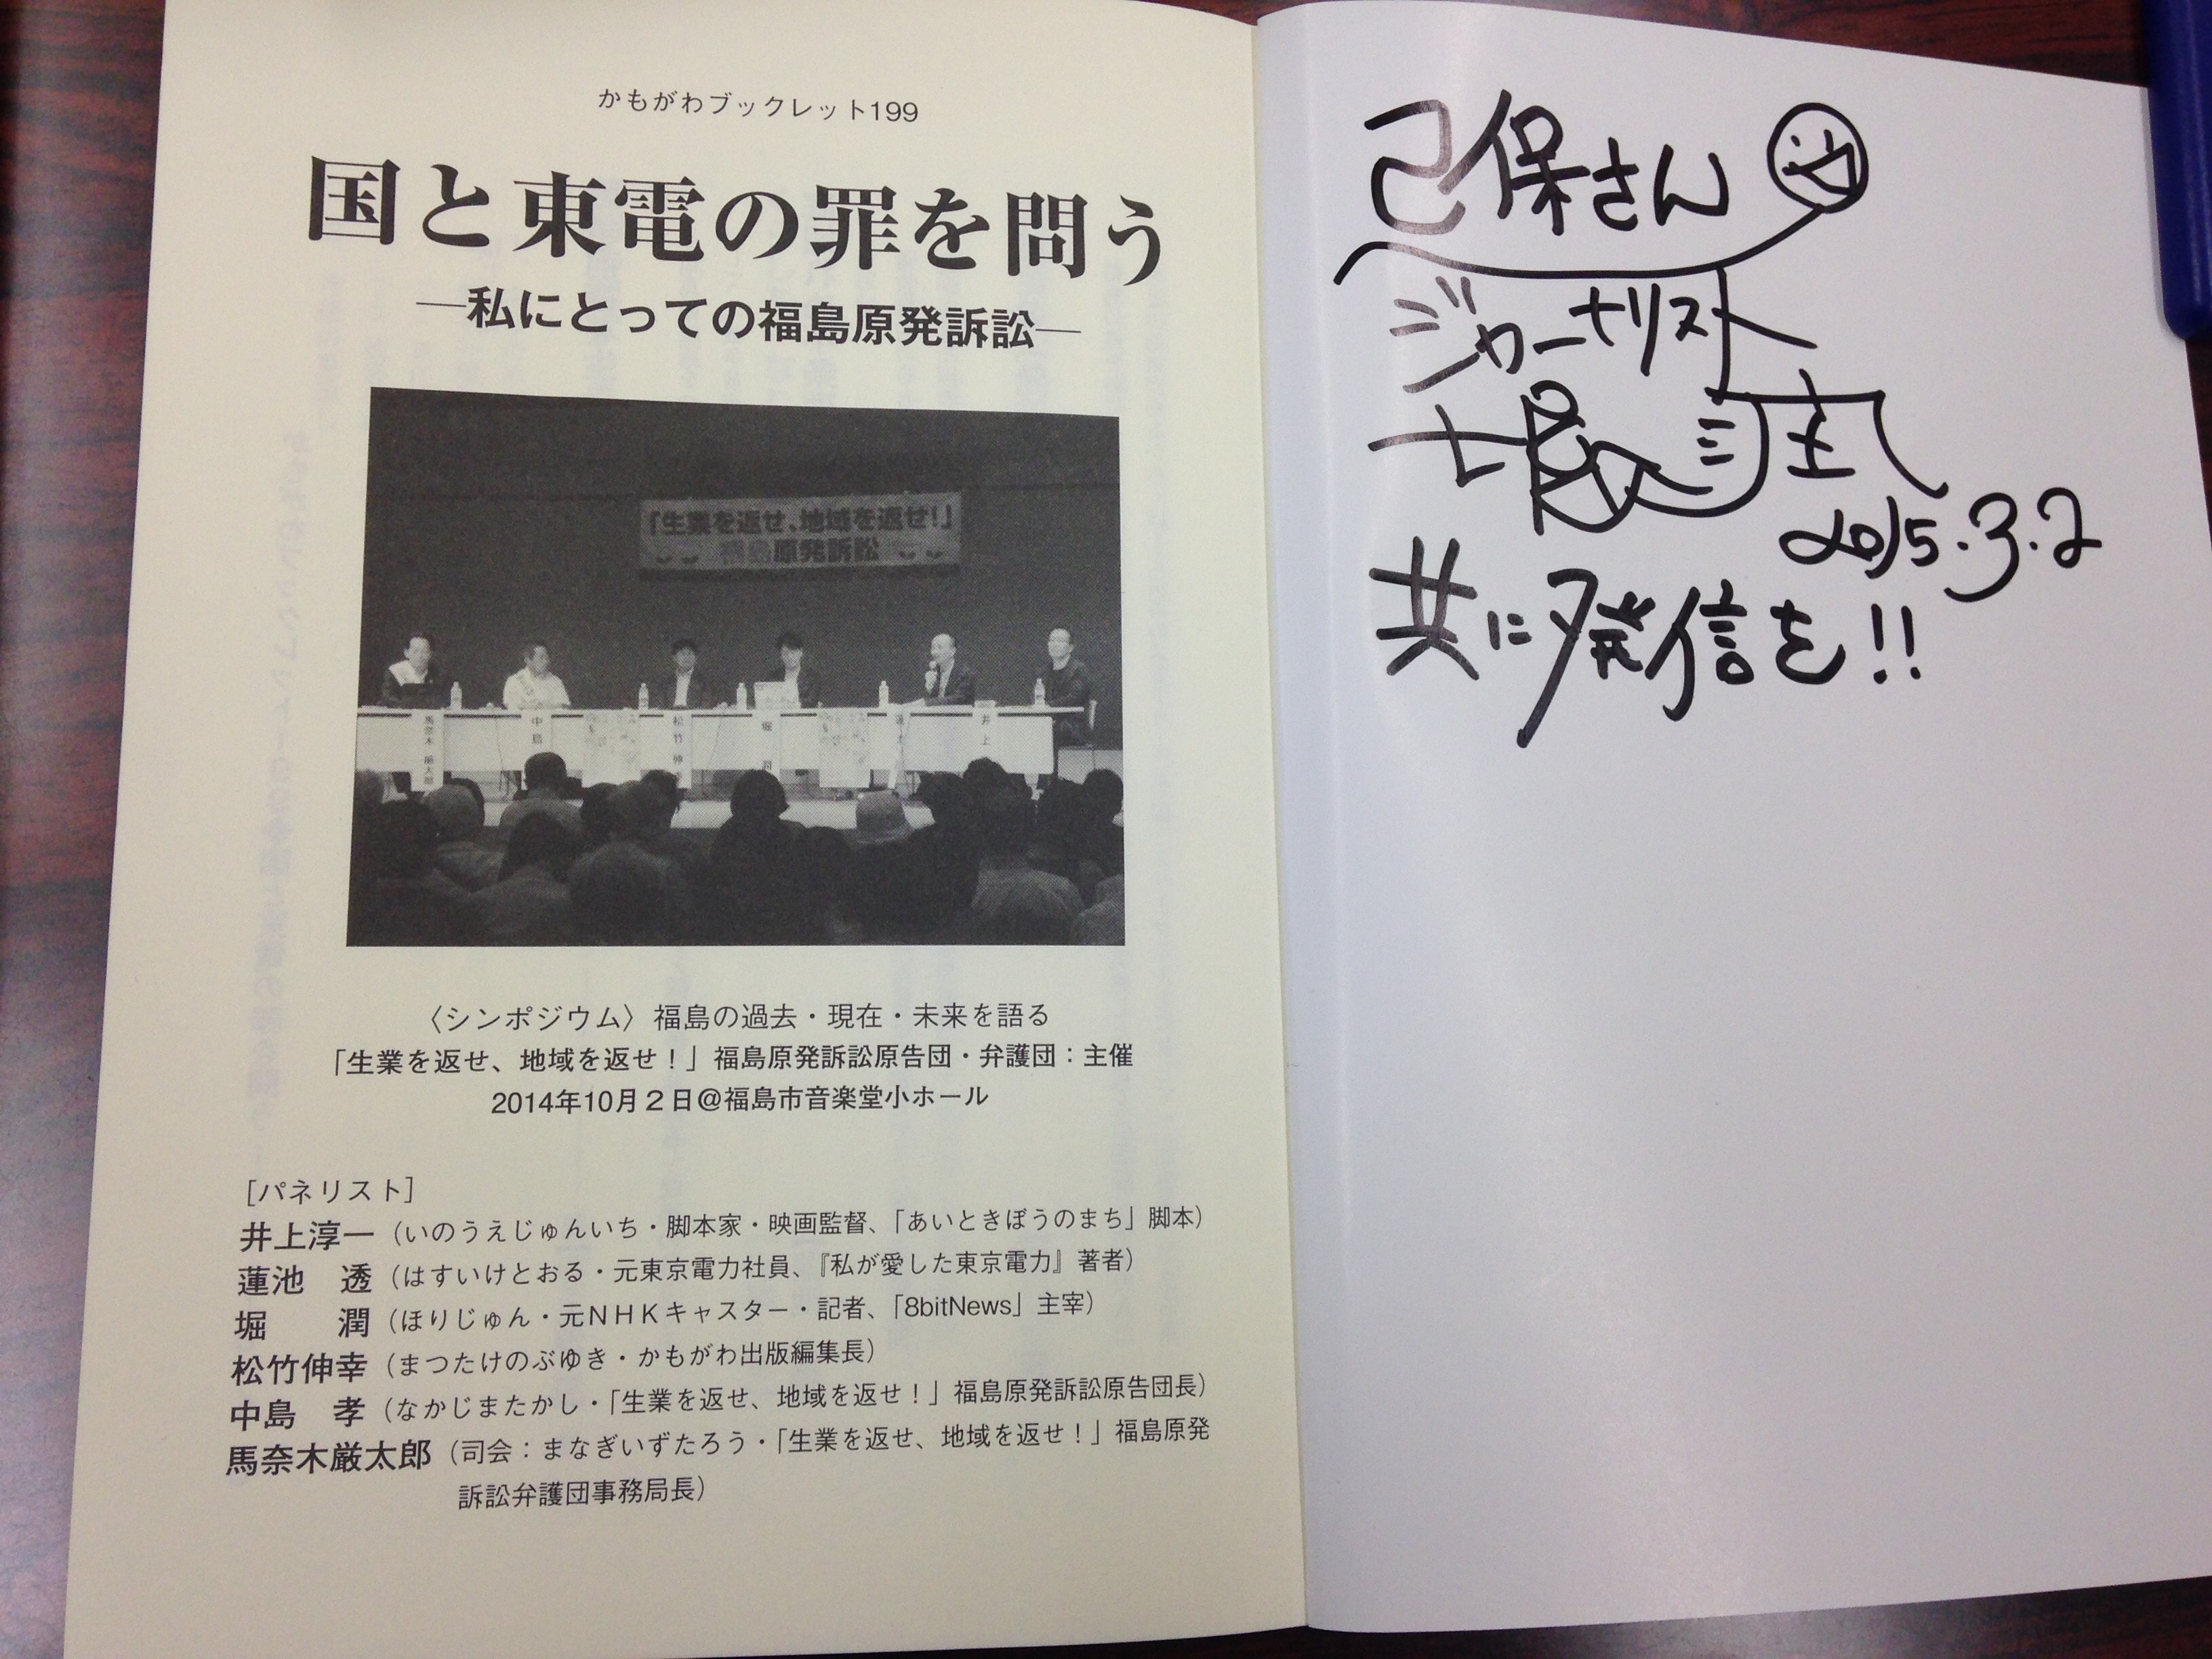 かもがわブックレット199
国と東電の罪を問う
―私にとっての福島原発訴訟―
「生業を返せ、地域を返せ!」
福島原発訴訟
馬奈木 厳太郎
中島
松竹 伸幸
堀 潤
井上
〈シンポジウム〉福島の過去・現在・未来を語る
「生業を返せ、地域を返せ！」福島原発訴訟原告団・弁護団：主催
2014年10月２日＠福島市音楽堂小ホール
［パネリスト］
井上淳一（いのうえじゅんいち・脚本家・映画監督、「あいときぼうのまち」脚本）
蓮池　透（はすいけとおる・元東京電力社員、『私が愛した東京電力』著者）
堀　　潤（ほりじゅん・元ＮＨＫキャスター・記者、「8bitNews」主宰）
松竹伸幸（まつたけのぶゆき・かもがわ出版編集長）
中島　孝（なかじまたかし・「生業を返せ、地域を返せ！」福島原発訴訟原告団長）
馬奈木厳太郎（司会：まなぎいずたろう・「生業を返せ、地域を返せ！」福島原発
訴訟弁護団事務局長）
己保さん
ジャーナリスト
2015.3.2
共に発信を!!